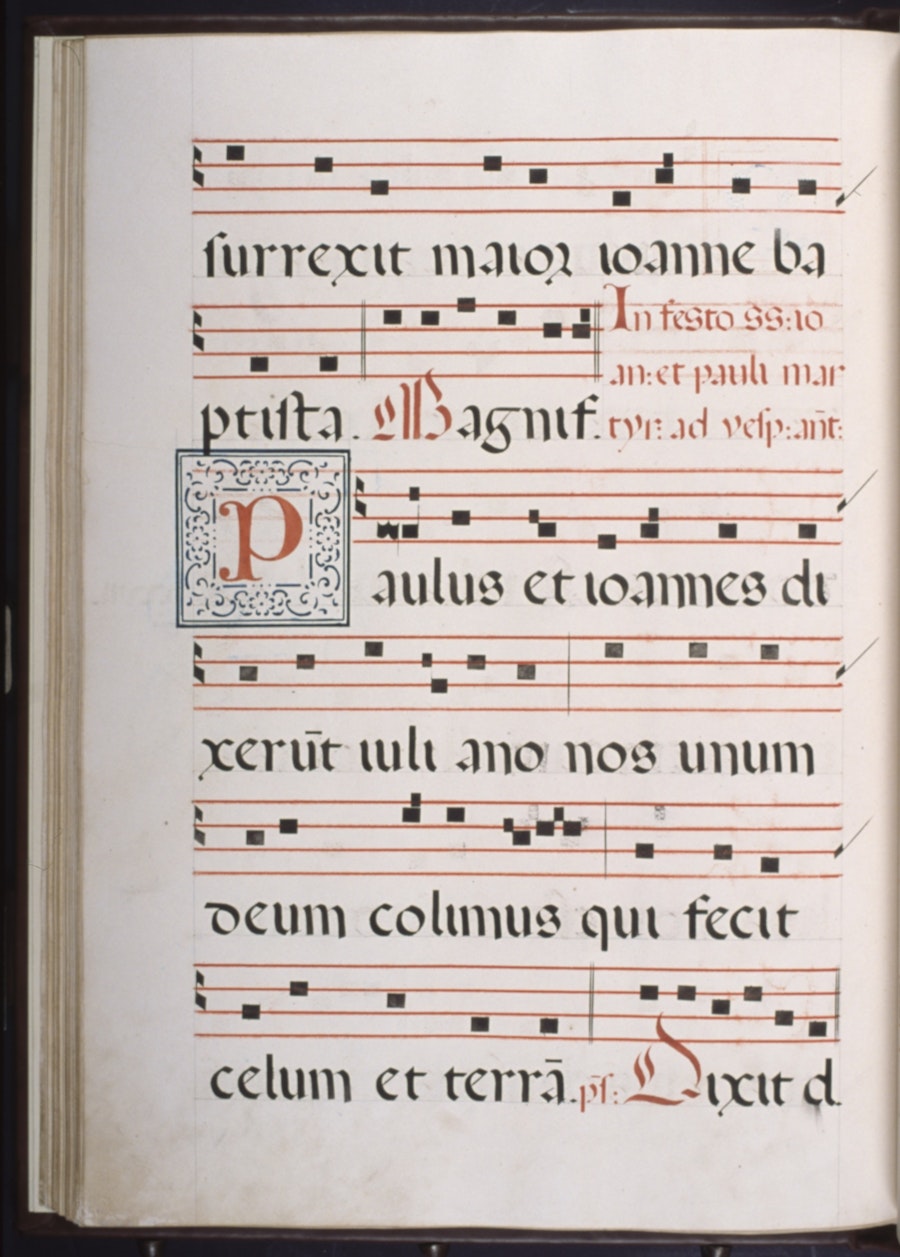 surrexit maior ioanne ba
ptista. Magnif.
In festo SS:io
an:et pauli mar
tyr: ad vesp:an̄t:
Paulus et ioannes di
xerūt iuli ano nos unum
deum colimus qui fecit
celum et terrā. ps: Dixit d.